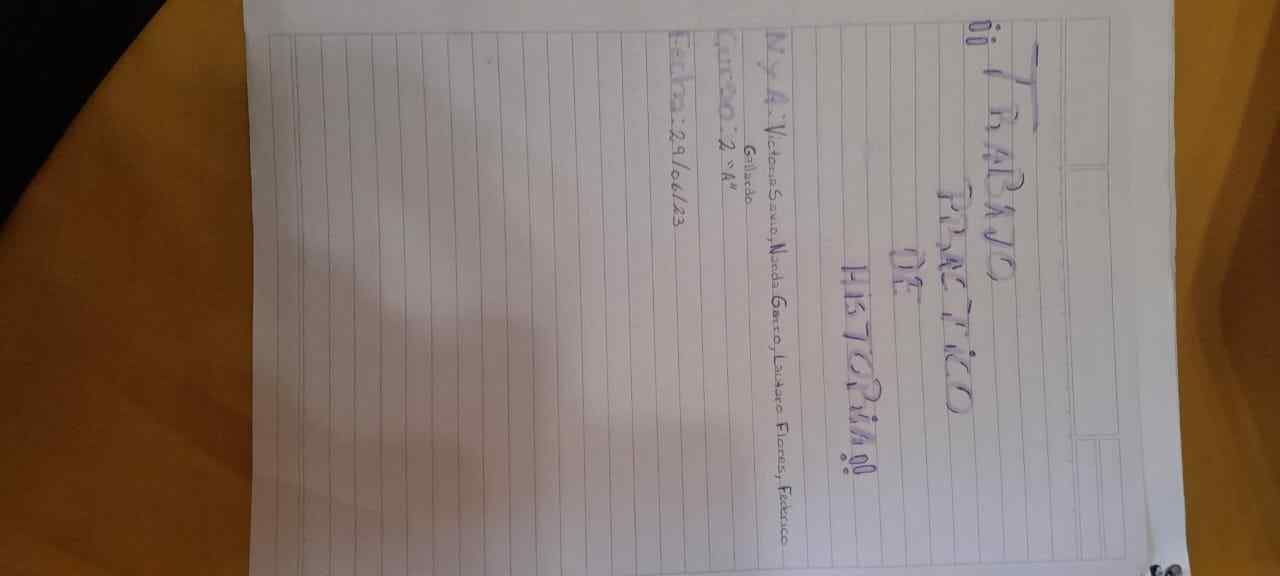 ¡¡TRABAJO
PRACTICO
DE
HISTORIA!!
N y A: Victoria Savio, Nanda Garro, Lautaro Flores, Federico
Gallardo
Curso: 2 "A"
Fecha: 29/06/23